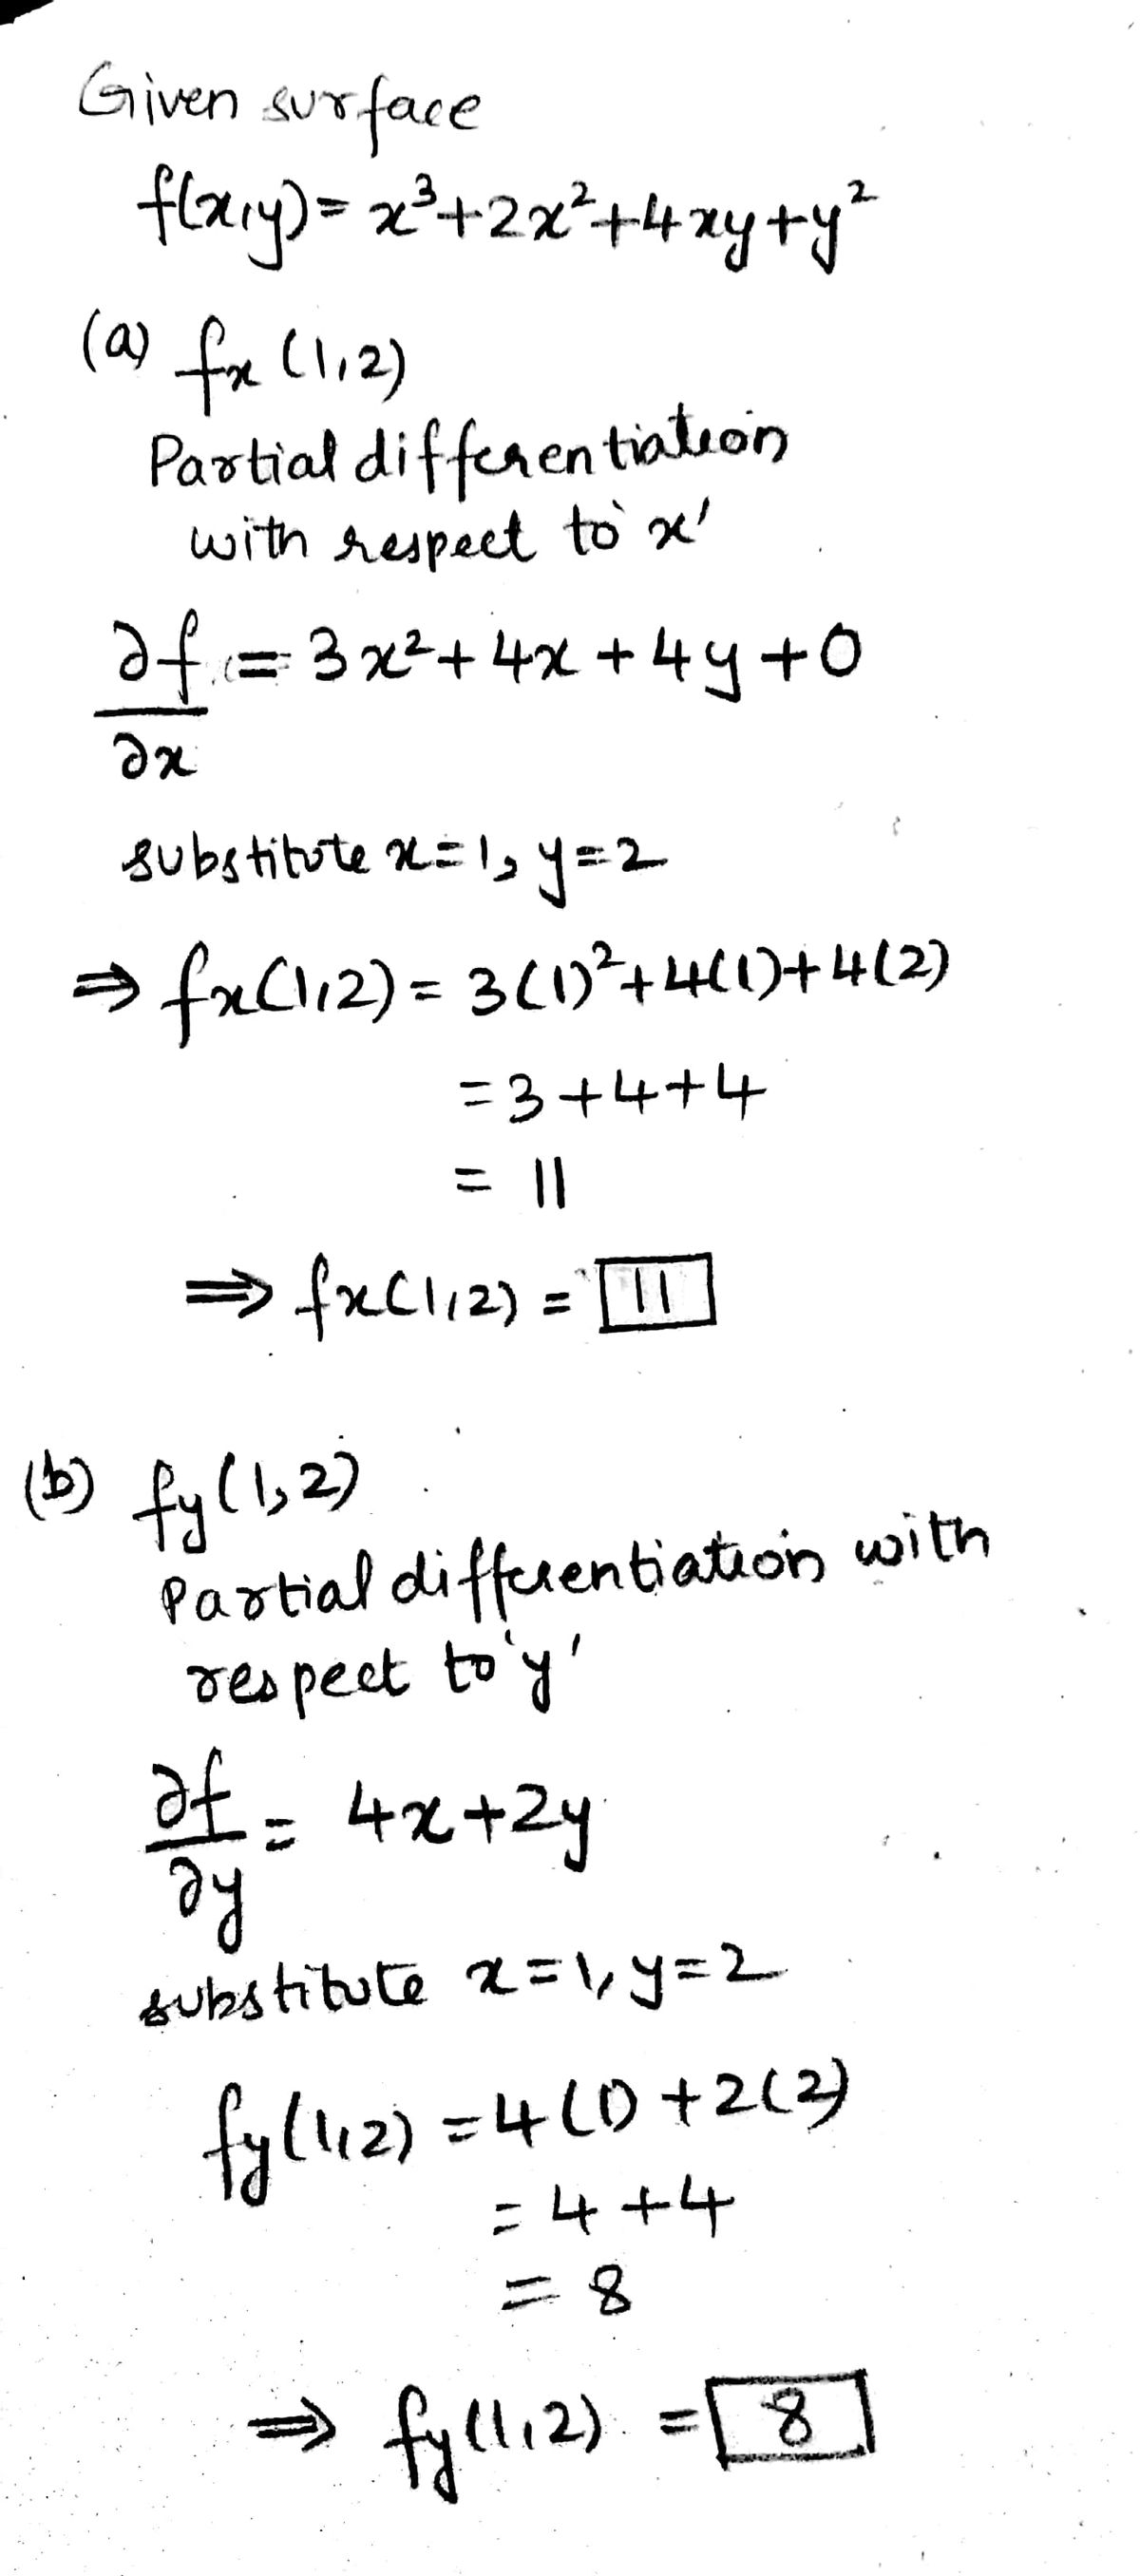 Given surface
f(x,y) = x³+2x²+4xy+y²
(a) fx (1,2)
Partial differentiation
with respect to 'x'
∂f/∂x = 3x²+4x+4y+0
substitute x=1, y=2
⇒ fx(1,2) = 3(1)²+4(1)+4(2)
=3+4+4
= 11
⇒ fx(1,2) = 11
(b) fy(1,2)
Partial differentiation with
respect to 'y'
∂f/∂y = 4x+2y
substitute x=1, y=2
fy(1,2) =4(1)+2(2)
=4+4
=8
⇒ fy(1,2) = 8